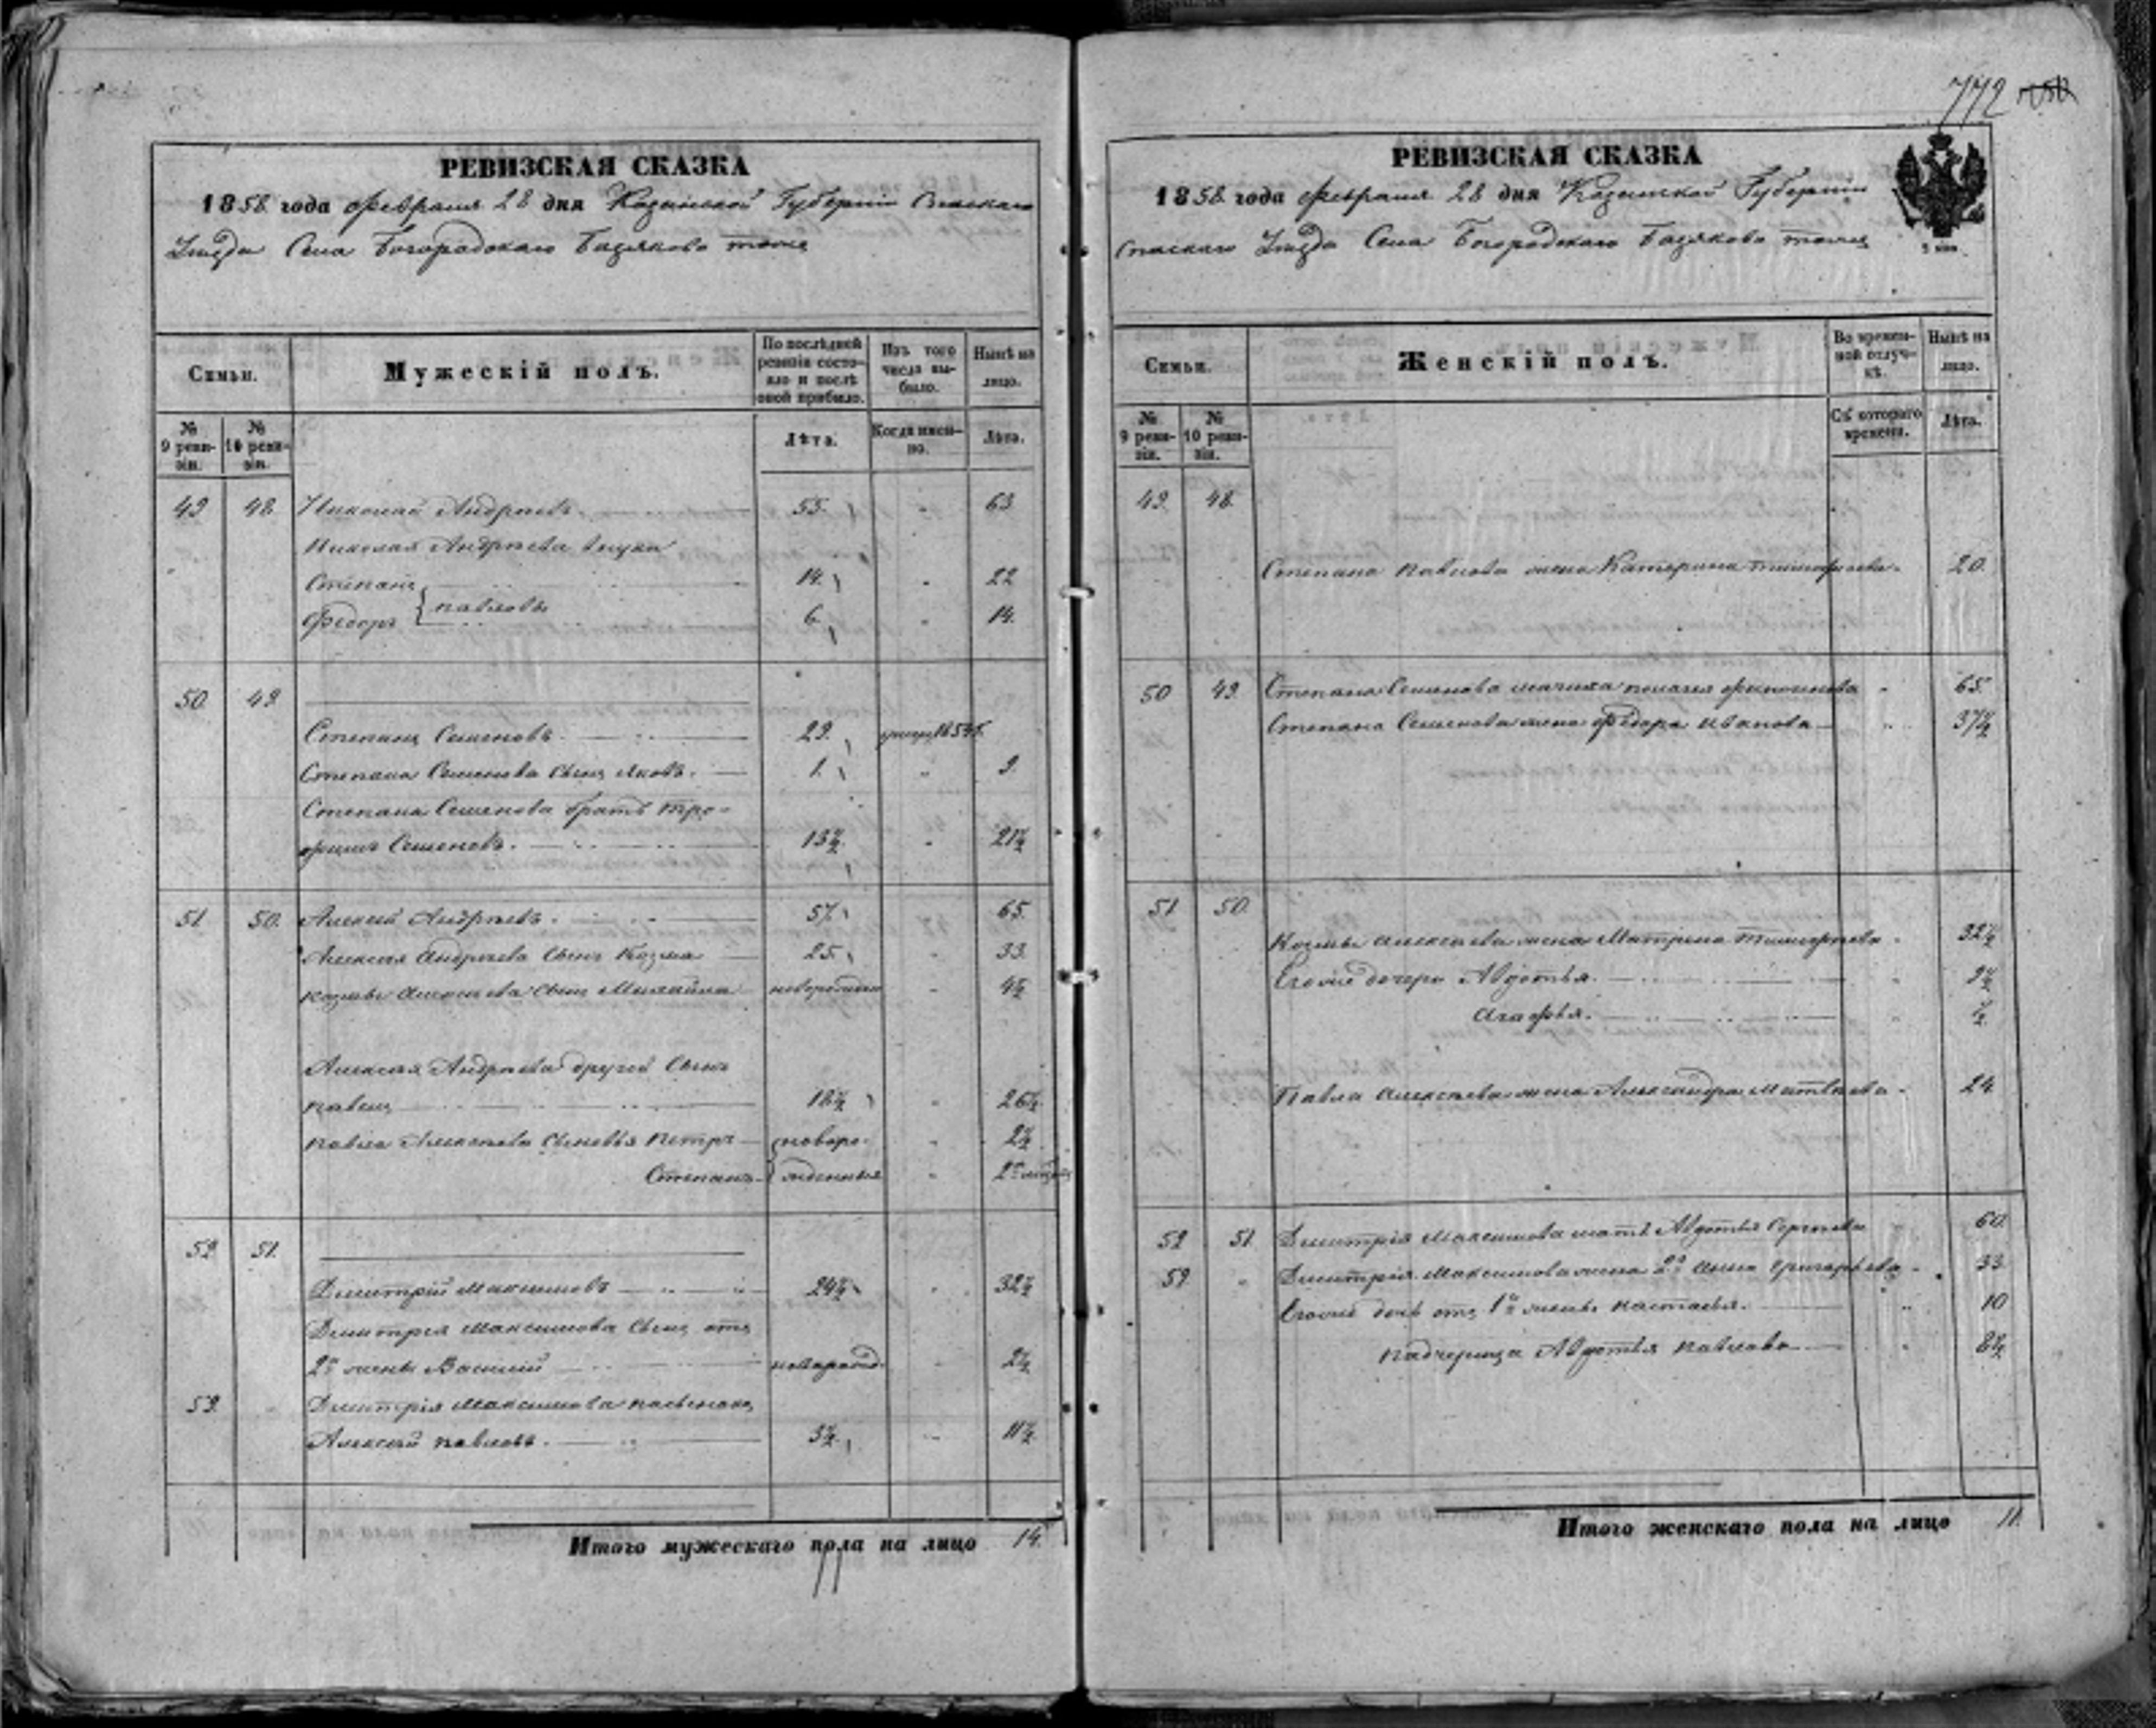 772
РЕВИЗСКАЯ СКАЗКА
1858 года февраля 28 дня Казанской Губерніи Спаскаго
Уѣзда Села Богородскаго Базяково тожъ
Семьи.
Мужескій полъ.
По послѣдней ревизіи состояло и послѣ оной прибыло.
Изъ того числа выбыло.
Нынѣ на лицо.
№ 9 ревизіи.
№ 10 ревизіи.
Лѣта.
Когда именно.
Лѣта.
49 48. Николай Андреевъ. 55. 63
Николая Андреева внуки
Степанъ 14. 22
Федоръ } павловы 6 14.
50 49.
Степанъ Семеновъ 29. 1854
Степана Семенова сынъ Яковъ. 1. 9.
Степана Семенова братъ Тро-
фимъ Семеновъ. 13½ 21½
51 50. Алексей Андреевъ. 57. 65.
Алексея Андреева сынъ Козма 25. 33.
Козмы Алексеева сынъ Михайла новорожден 4½
Алексея Андреева другой сынъ
павелъ 18½ 26½
павла Алексеева сыновья Петръ новоро- 2½
Степанъ жденныя 2
52 51.
Дмитрій Максимовъ 24½ 32½
Дмитрея Максимова сынъ отъ
2й жены Василій новорожд. 2½
59. Дмитрія Максимова пасынокъ
Алексей павловъ. 3½ 11½
Итого мужескаго пола на лицо 14.
РЕВИЗСКАЯ СКАЗКА
1858 года февраля 28 дня Казанской Губерніи
Спаскаго Уѣзда Села Богородскаго Базяково тожъ
Семьи.
Женскій полъ.
Во временной отлучкѣ.
Нынѣ на лицо.
№ 9 ревизіи.
№ 10 ревизіи.
Съ котораго времени.
Лѣта.
49. 48.
Степана павлова жена Катерина тимофеева. 20.
50 49. Степана Семенова мачиха пелагея филипова 65.
Степана Семенова жена Федора Иванова 37½
51 50.
Козмы Алексеева жена Матрена Тимофеева 32½
Егоже дочери Авдотья. 9½
Агафья. ½
Павла Алексеева жена Александра Матвеева 24
52 51 Дмитрія Максимова мать Авдотья Сергеева 60.
59 Дмитрія Максимова жена 2я Анна Григорьева 33.
Егоже дочь отъ 1й жены настасья. 10
падчерица Авдотья павлова 8½
Итого женскаго пола на лицо 11.